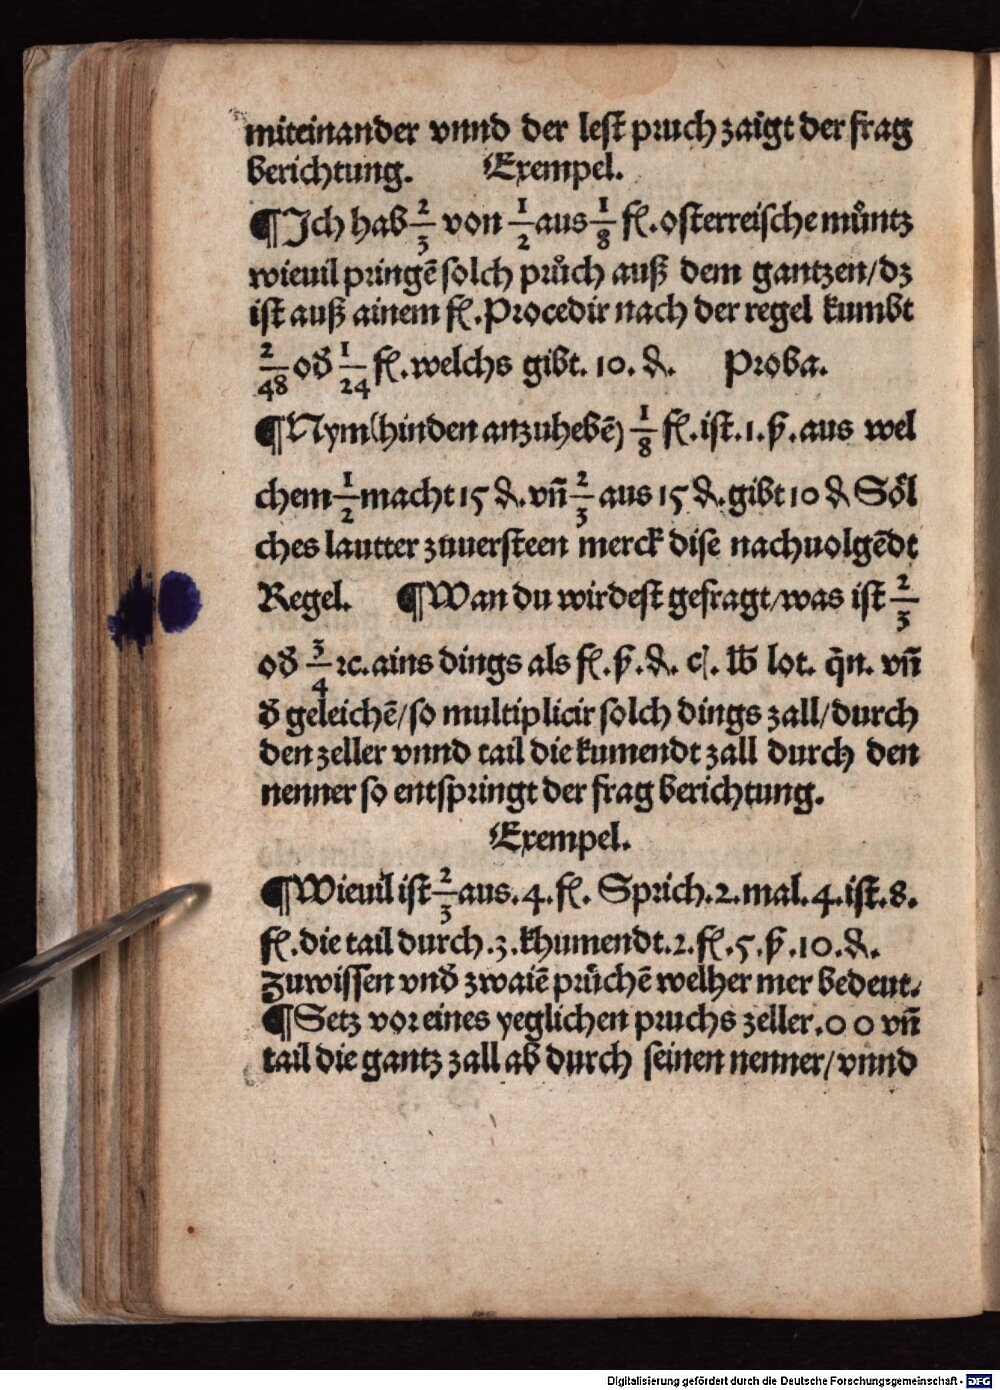 miteinander vnnd der lest pruch zaigt der frag
berichtung. Exempel.
¶Ich hab 2/3 von 1/2 aus 1/8 fl. osterreische můntz
wieuil pringē solch průch auß dem gantzen/dz
ist auß ainem fl. Procedir nach der regel kumbt
2/48 oď 1/24 fl. welchs gibt. 10. ₰. Proba.
¶Nym (hinden anzuhebē) 1/8 fl. ist. 1. ß. aus wel
chem 1/2 macht 15 ₰. vñ 2/3 aus 15 ₰. gibt 10 ₰ Söl
ches lautter zuuersteen merck dise nachuolgēdt
Regel. ¶Wan du wirdest gefragt/was ist 2/3
oď 3/4 ꝛc. ains dings als fl. ß. ₰. c. lb lot. q̄n. vñ
ď geleichē/so multiplicir solch dings zall/durch
den zeller vnnd tail die kumendt zall durch den
nenner so entspringt der frag berichtung.
Exempel.
¶Wieuil ist 2/3 aus. 4. fl. Sprich. 2. mal. 4. ist. 8.
fl. die tail durch. 3. khumendt. 2. fl. 5. ß. 10. ₰.
Zuwissen vnď zwaiē průchē welher mer bedeut.
¶Setz vor eines yeglichen pruchs zeller. 0 0 vñ
tail die gantz zall ab durch seinen nenner/vnnd
Digitalisierung gefördert durch die Deutsche Forschungsgemeinschaft - DFG